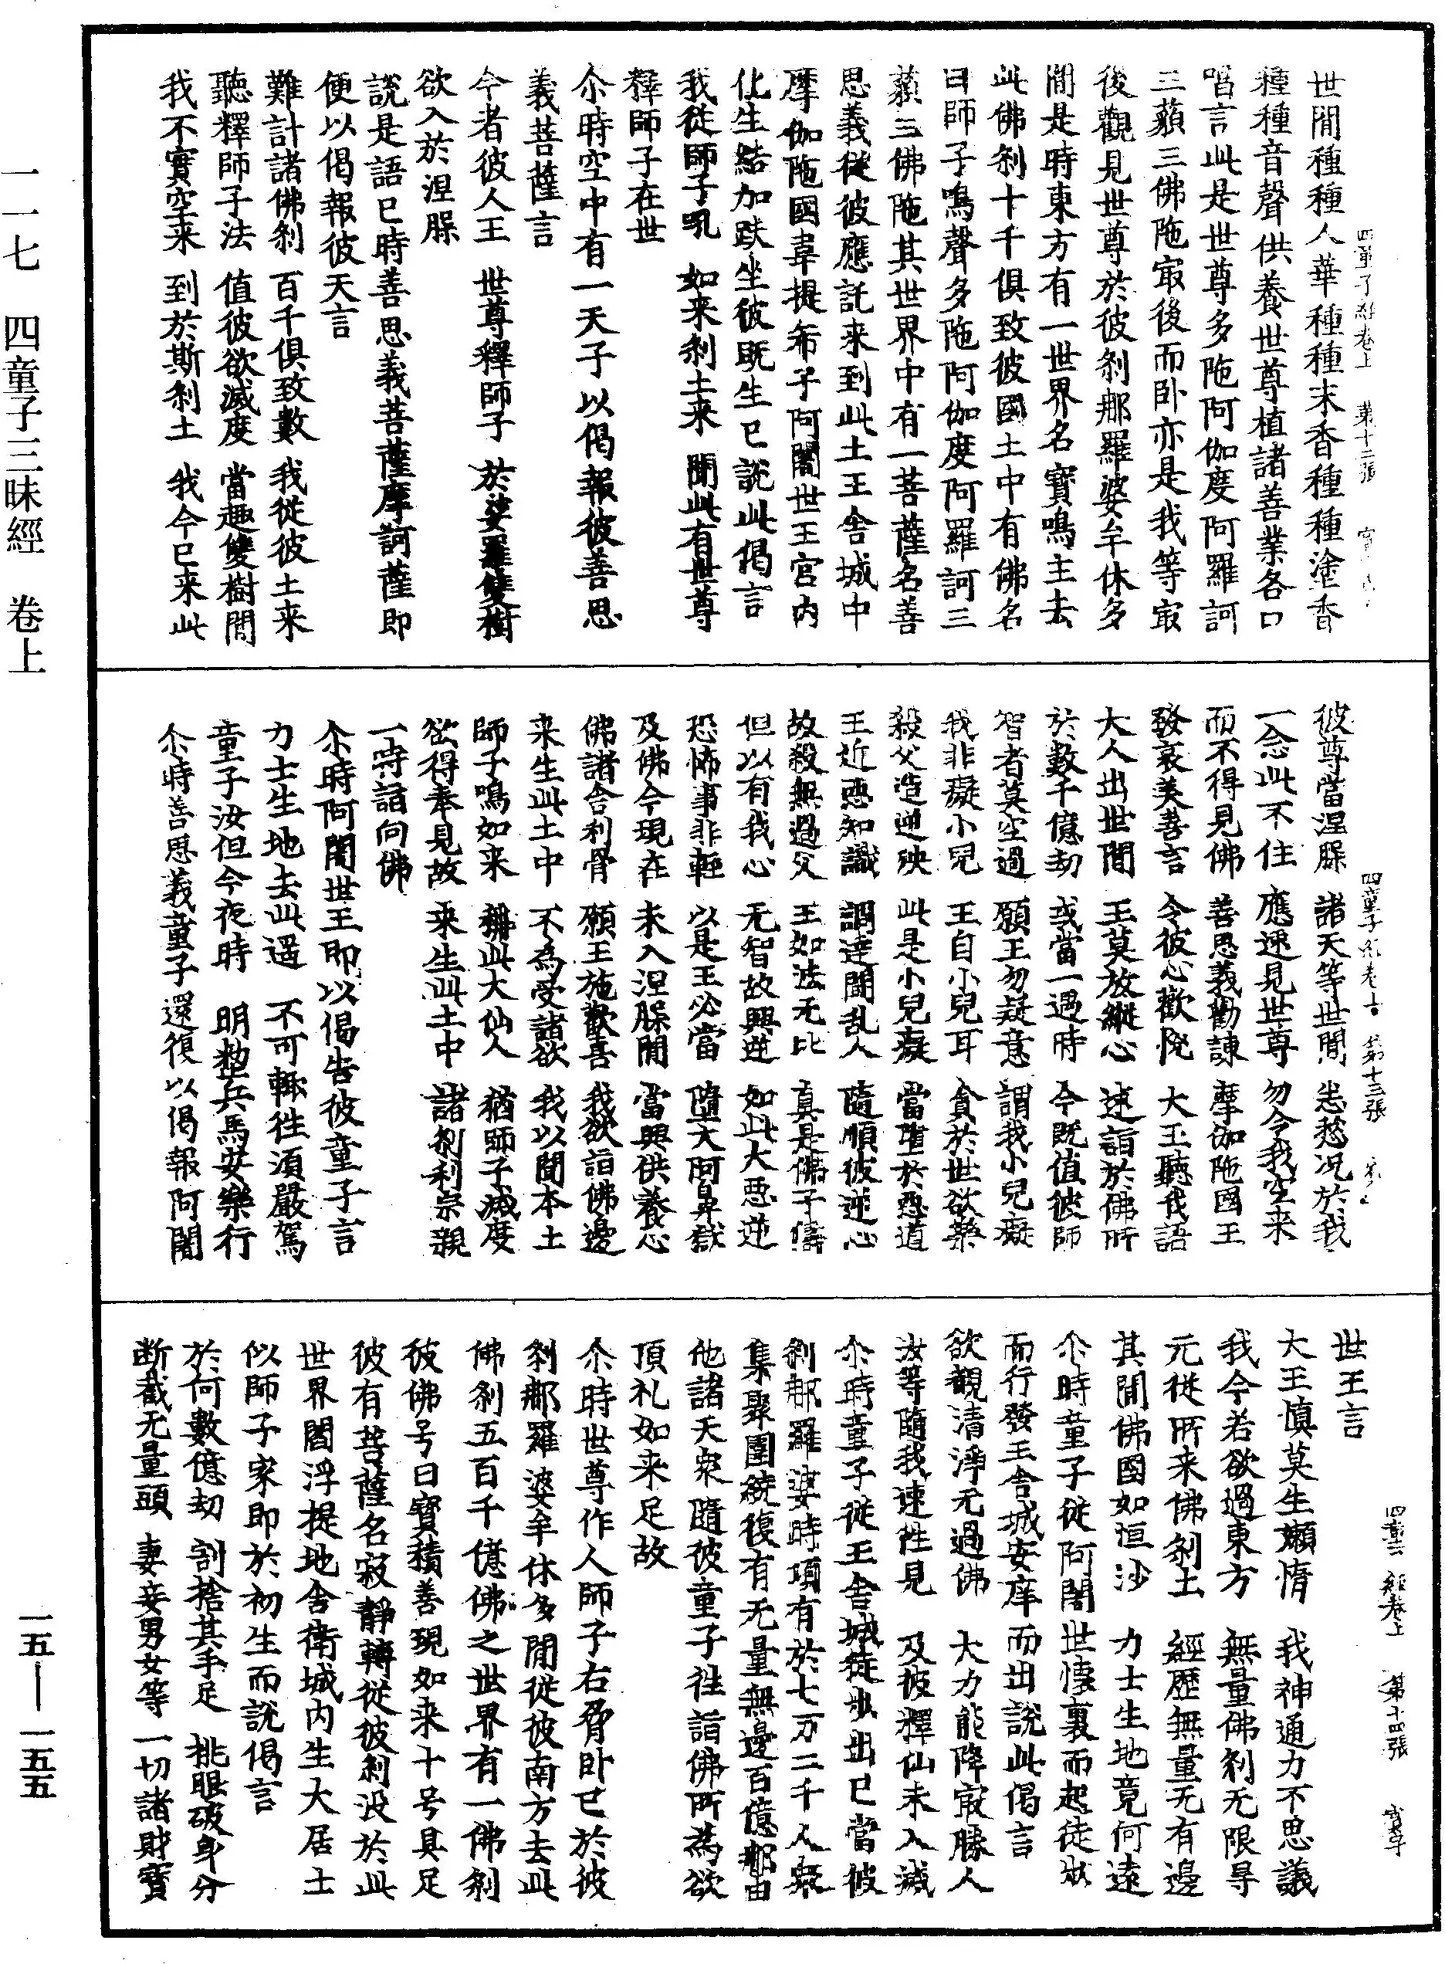 四童子經卷上 第十二張
世間種種人華種種末香種種塗香
種種音聲供養世尊植諸善業各口
唱言此是世尊多陁阿伽度阿羅訶
三藐三佛陁㝡後而卧亦是我等㝡
後觀見世尊於彼刹那羅婆牟休多
間是時東方有一世界名寶鳴主去
此佛刹十千俱致彼國土中有佛名
曰師子鳴聲多陁阿伽度阿羅訶三
藐三佛陁其世界中有一菩薩名善
思義從彼應託来到此土王舍城中
摩伽陁國韋提希子阿闍世王宮内
化生結加趺坐彼既生已說此偈言
我從師子吼 如来刹土来 聞此有世尊
釋師子在世
尒時空中有一天子以偈報彼善思
義菩薩言
今者彼人王 世尊釋師子 於娑羅雙樹
欲入於涅𦘺
說是語已時善思義菩薩摩訶薩即
便以偈報彼天言
難計諸佛刹 百千俱致數 我從彼土来
聽釋師子法 值彼欲滅度 當趣雙樹間
我不實空来 到於斯刹土 我今已来此
四童子經卷上 第十三張
彼尊當涅𦘺 諸天等世間 悲愁況於我
一念此不住 應速見世尊 勿令我空来
而不得見佛 善思義勸諫 摩伽陁國王
發哀美善言 令彼心歡悅 大王聽我語
大人出世間 王莫放縱心 速詣於佛所
於數千億劫 或當一遇時 今既值彼師
智者莫空過 願王勿疑意 謂我小兒癡
我非癡小兒 王自小兒耳 貪於世欲樂
殺父造逆殃 此是小兒癡 當墮於惡道
王近惡知識 調達閙乱人 隨順彼逆心
故殺無過父 王如法无比 真是佛子儔
但以有我心 无智故興逆 如此大惡逆
恐怖事非輕 以是王必當 墮大阿鼻獄
及佛今現在 未入涅𦘺間 當興供養心
佛諸舍利骨 願王施歡喜 我欲詣佛邊
来生此土中 不為受諸欲 我以聞本土
師子鳴如来 稱此大仙人 猶師子滅度
欲得奉見故 来生此土中 諸刹利宗親
一時詣向佛
尒時阿闍世王即以偈告彼童子言
力士生地去此遥 不可輙往須嚴駕
童子汝但今夜時 明整兵馬安樂行
尒時善思義童子還復以偈報阿闍
四童子經卷上 第十四張
世王言
大王慎莫生嬾惰 我神通力不思議
我今若欲過東方 無量佛刹无限尋
元從所来佛刹土 經歷無量无有邊
其間佛國如恒沙 力士生地竟何遠
尒時童子從阿闍世懷裏而起徒步
而行發王舍城安庠而出說此偈言
欲觀清淨无過佛 大力能降㝡勝人
汝等隨我速往見 及彼釋仙未入滅
尒時童子從王舍城徒步出已當彼
刹那羅婆時頃有於七万二千人衆
集聚圍繞復有无量無邊百億那由
他諸天衆隨彼童子往詣佛所為欲
頂礼如来足故
尒時世尊作人師子右脅卧已於彼
刹那羅婆牟休多間從彼南方去此
佛刹五百千億佛之世界有一佛刹
彼佛号曰寶積善現如来十号具足
彼有菩薩名寂靜轉從彼刹没於此
世界閻浮提地舍衛城内生大居士
似師子家即於初生而說偈言
於何數億劫 割捨其手足 挑眼破身分
断截无量頭 妻妾男女等 一切諸財寶
一一七 四童子三昧經 卷上
一五——一五五